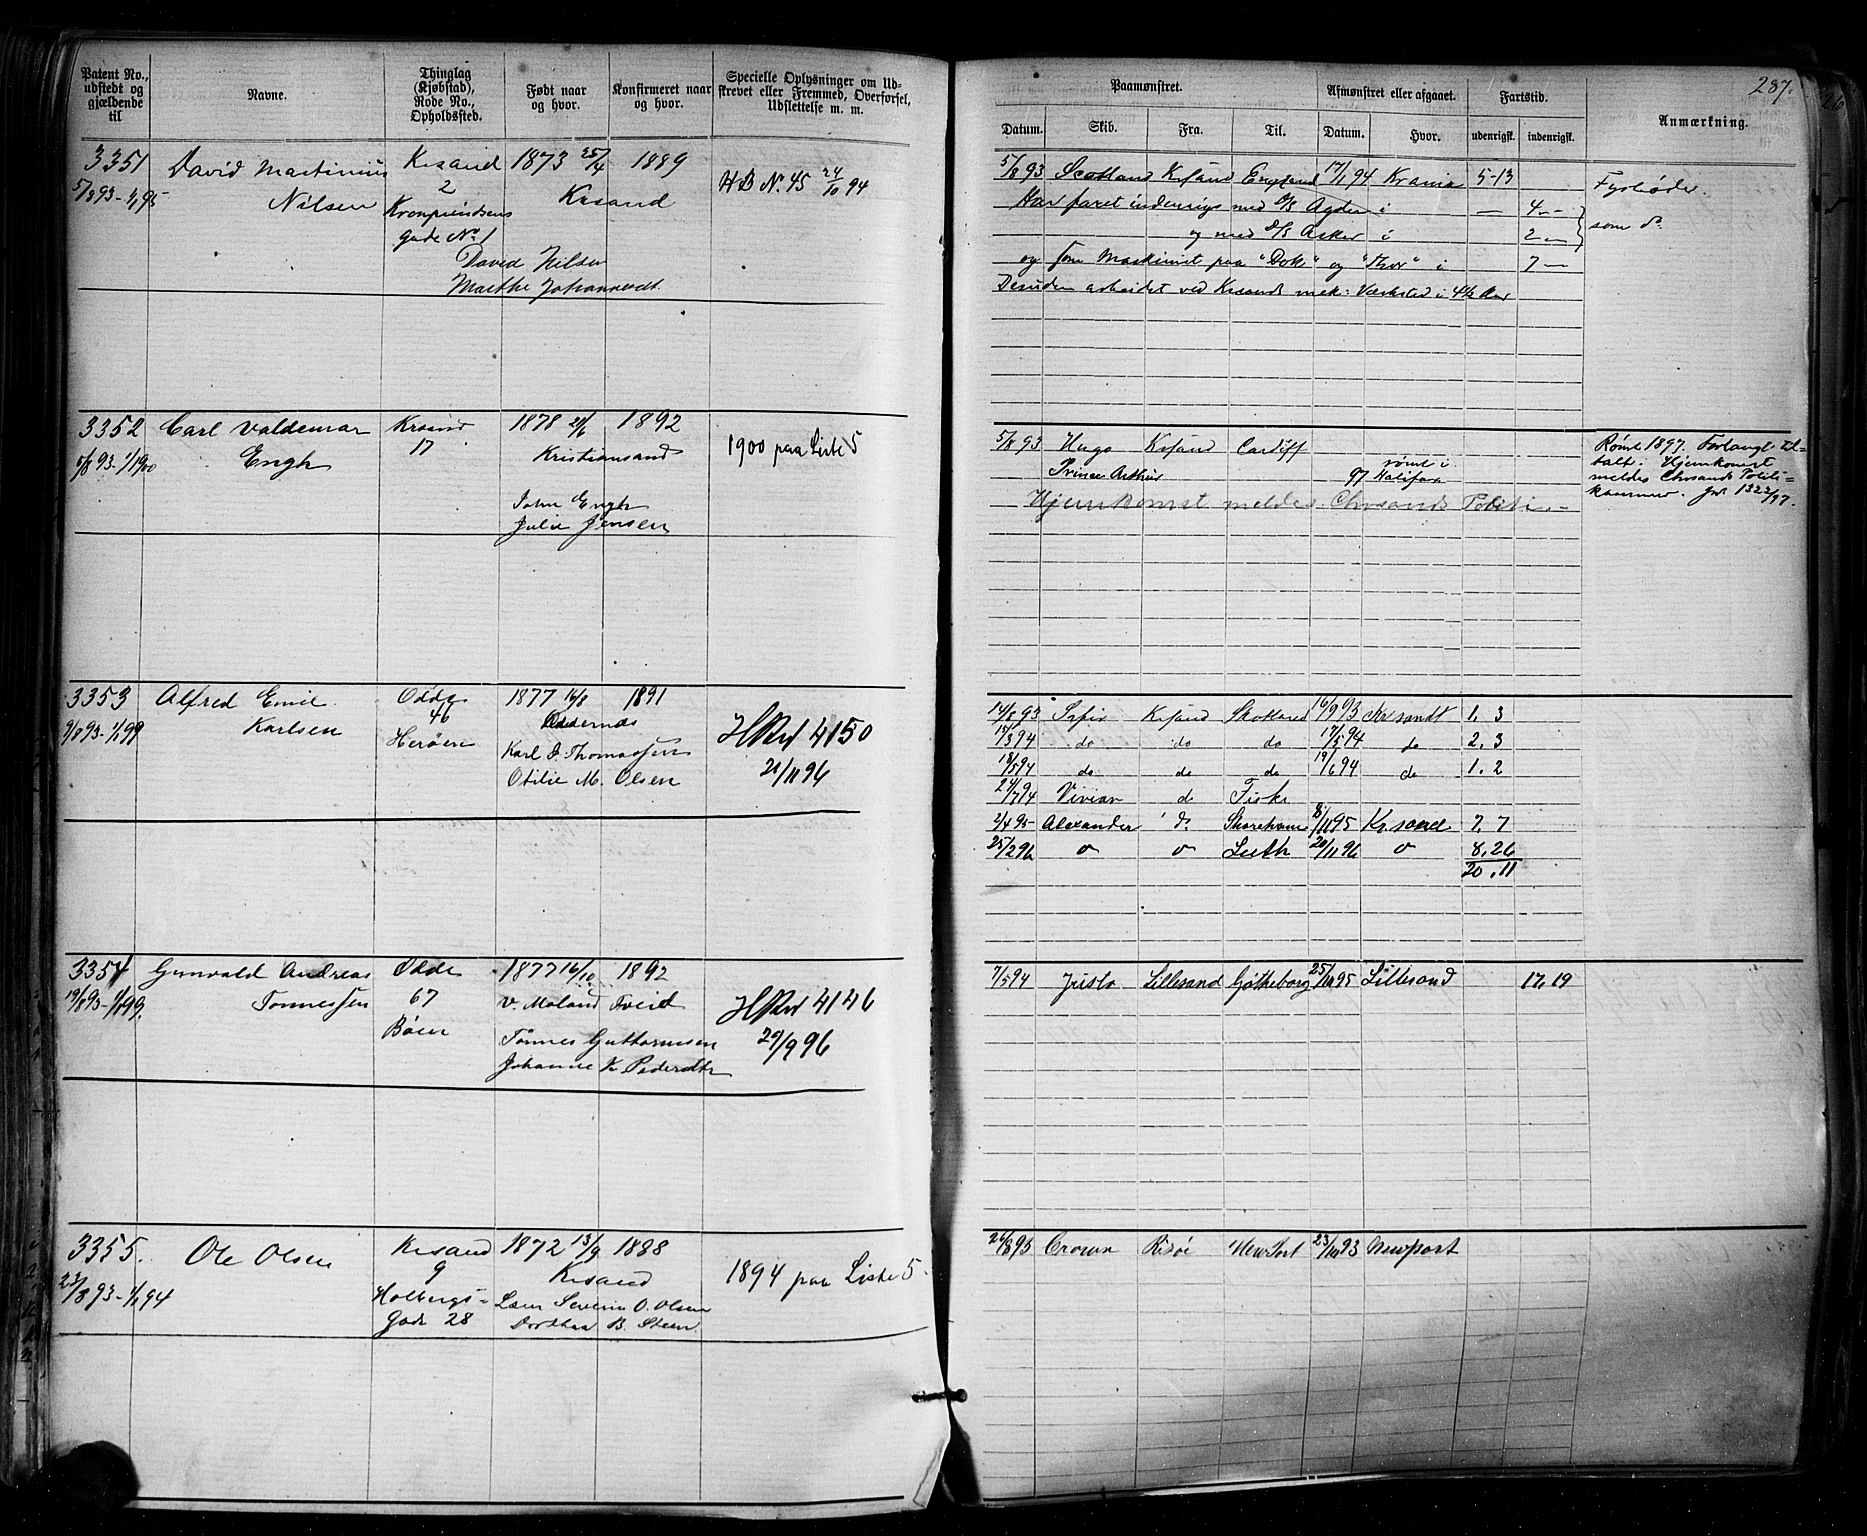 287.
Patent No., udstedt og gjældende til
Navne.
Thinglag (Kjøbstad), Rode No., Opholdssted.
Født naar og hvor.
Konfirmeret naar og hvor.
Specielle Oplysninger om Udskrevet eller Fremmed, Overførsel, Udslettelse m. m.
Paamønstret.
Afmønstret eller afgaaet.
Fartstid.
Anmærkning.
Datum. Skib. Fra. Til. Datum. Hvor. udenrigsk. indenrigsk.
3351 David Martinius Krsand 1873 25/4 1889
5/8 93 - 1/1 95 Nilsen 2 Krsand HB No. 45 24/10 94
Kronprindsens
gade No. 1
David Nilsen
Marthe Johannesdt.
5/8 93 Scotland Krsand England 17/1 94 Krania 5-13 Fyrbøder
Har faret indenrigs med D/S Agder i — 4 — som do
og med D/S Asker i 2 —
og som Maskinist paa "Dok" og "Thor" i 7 —
Desuden arbeidet ved Krsands mek: Værksted i 4½ Aar
3352 Carl Valdemar Krsand 1878 21/6 1892
5/8 93 - 1/1 1900 Engh 17 Kristiansand 1900 paa Liste 5
John Engh
Julie Jensen
5/8 93 Hugo Krsand Cardiff
Prince Arthur 97 rømt i Halifax
Hjemkomst meldes Chrsands Politi. -
Rømt 1897. Forlangt til-
talt. Hjemkomst
meldes Chrsands Politi-
kammer. Jnr 1322/97.
3353 Alfred Emil Odde 1877 16/8 1891
9/8 93 - 1/1 99 Karlsen 46 Oddernes HRul 4150
Herøen Karl J. Thomassen 21/11 96
Otilie M. Olsen
14/8 93 Safir Krsand Skotland 16/9 93 Krsandt 1. 3
15/3 94 do do do 17/5 94 do 2. 3
18/5 94 do do do 19/6 94 do 1. 2
24/7 94 Vivian do Fiske
2/4 95 Alexander do Shoreham 8/11 95 Kr.sand 7. 7
25/2 96 " " Leith 20/11 96 " 8. 26
20. 11
3354 Gunvald Andreas Odde 1877 16/10 1892
19/8 93 - 1/1 99. Tønnessen 67 V. Moland Tveit HRul 4146
Bøen Tønnes Guttormsen 29/9 96
Johanne K Pedersdtr
7/5 94 Lillesand Gøtheborg 25/10 95 Lillesand 17. 19
3355. Ole Olsen Krsand 1872 13/9 1888
23/8 93 - 1/1 94 9 Krsand 1894 paa Liste 5.
Holbergs- Lars Severin O. Olsen
Gade 28 Dorthea B. Steen.
26/8 93 Crown Risør New Port 23/10 93 Newport